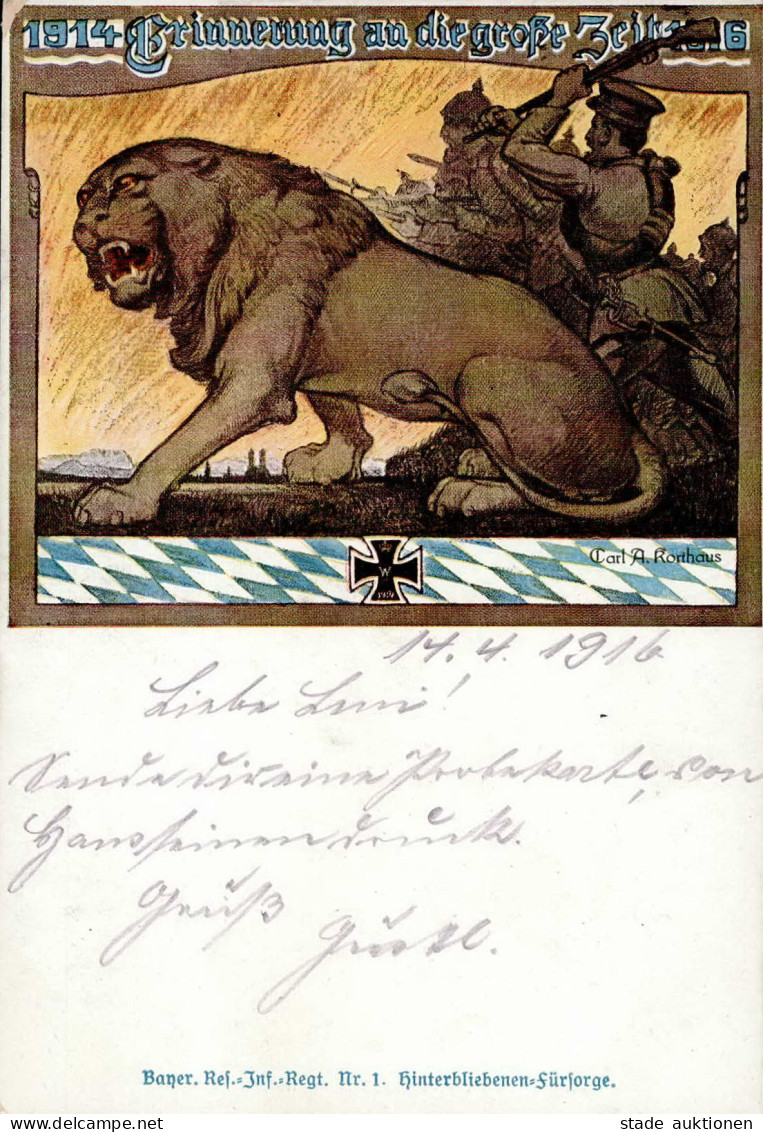 1914 Erinnerung an die große Zeit 1916
W
1914
Carl A. Korthaus
14.4.1916
Liebe Leni!
Sende dir eine Probekarte, von
Hans seinen druck.
Gruß
Gustl.
Bayer. Res.-Inf.-Regt. Nr. 1. Hinterbliebenen-Fürsorge.
stade auktionen